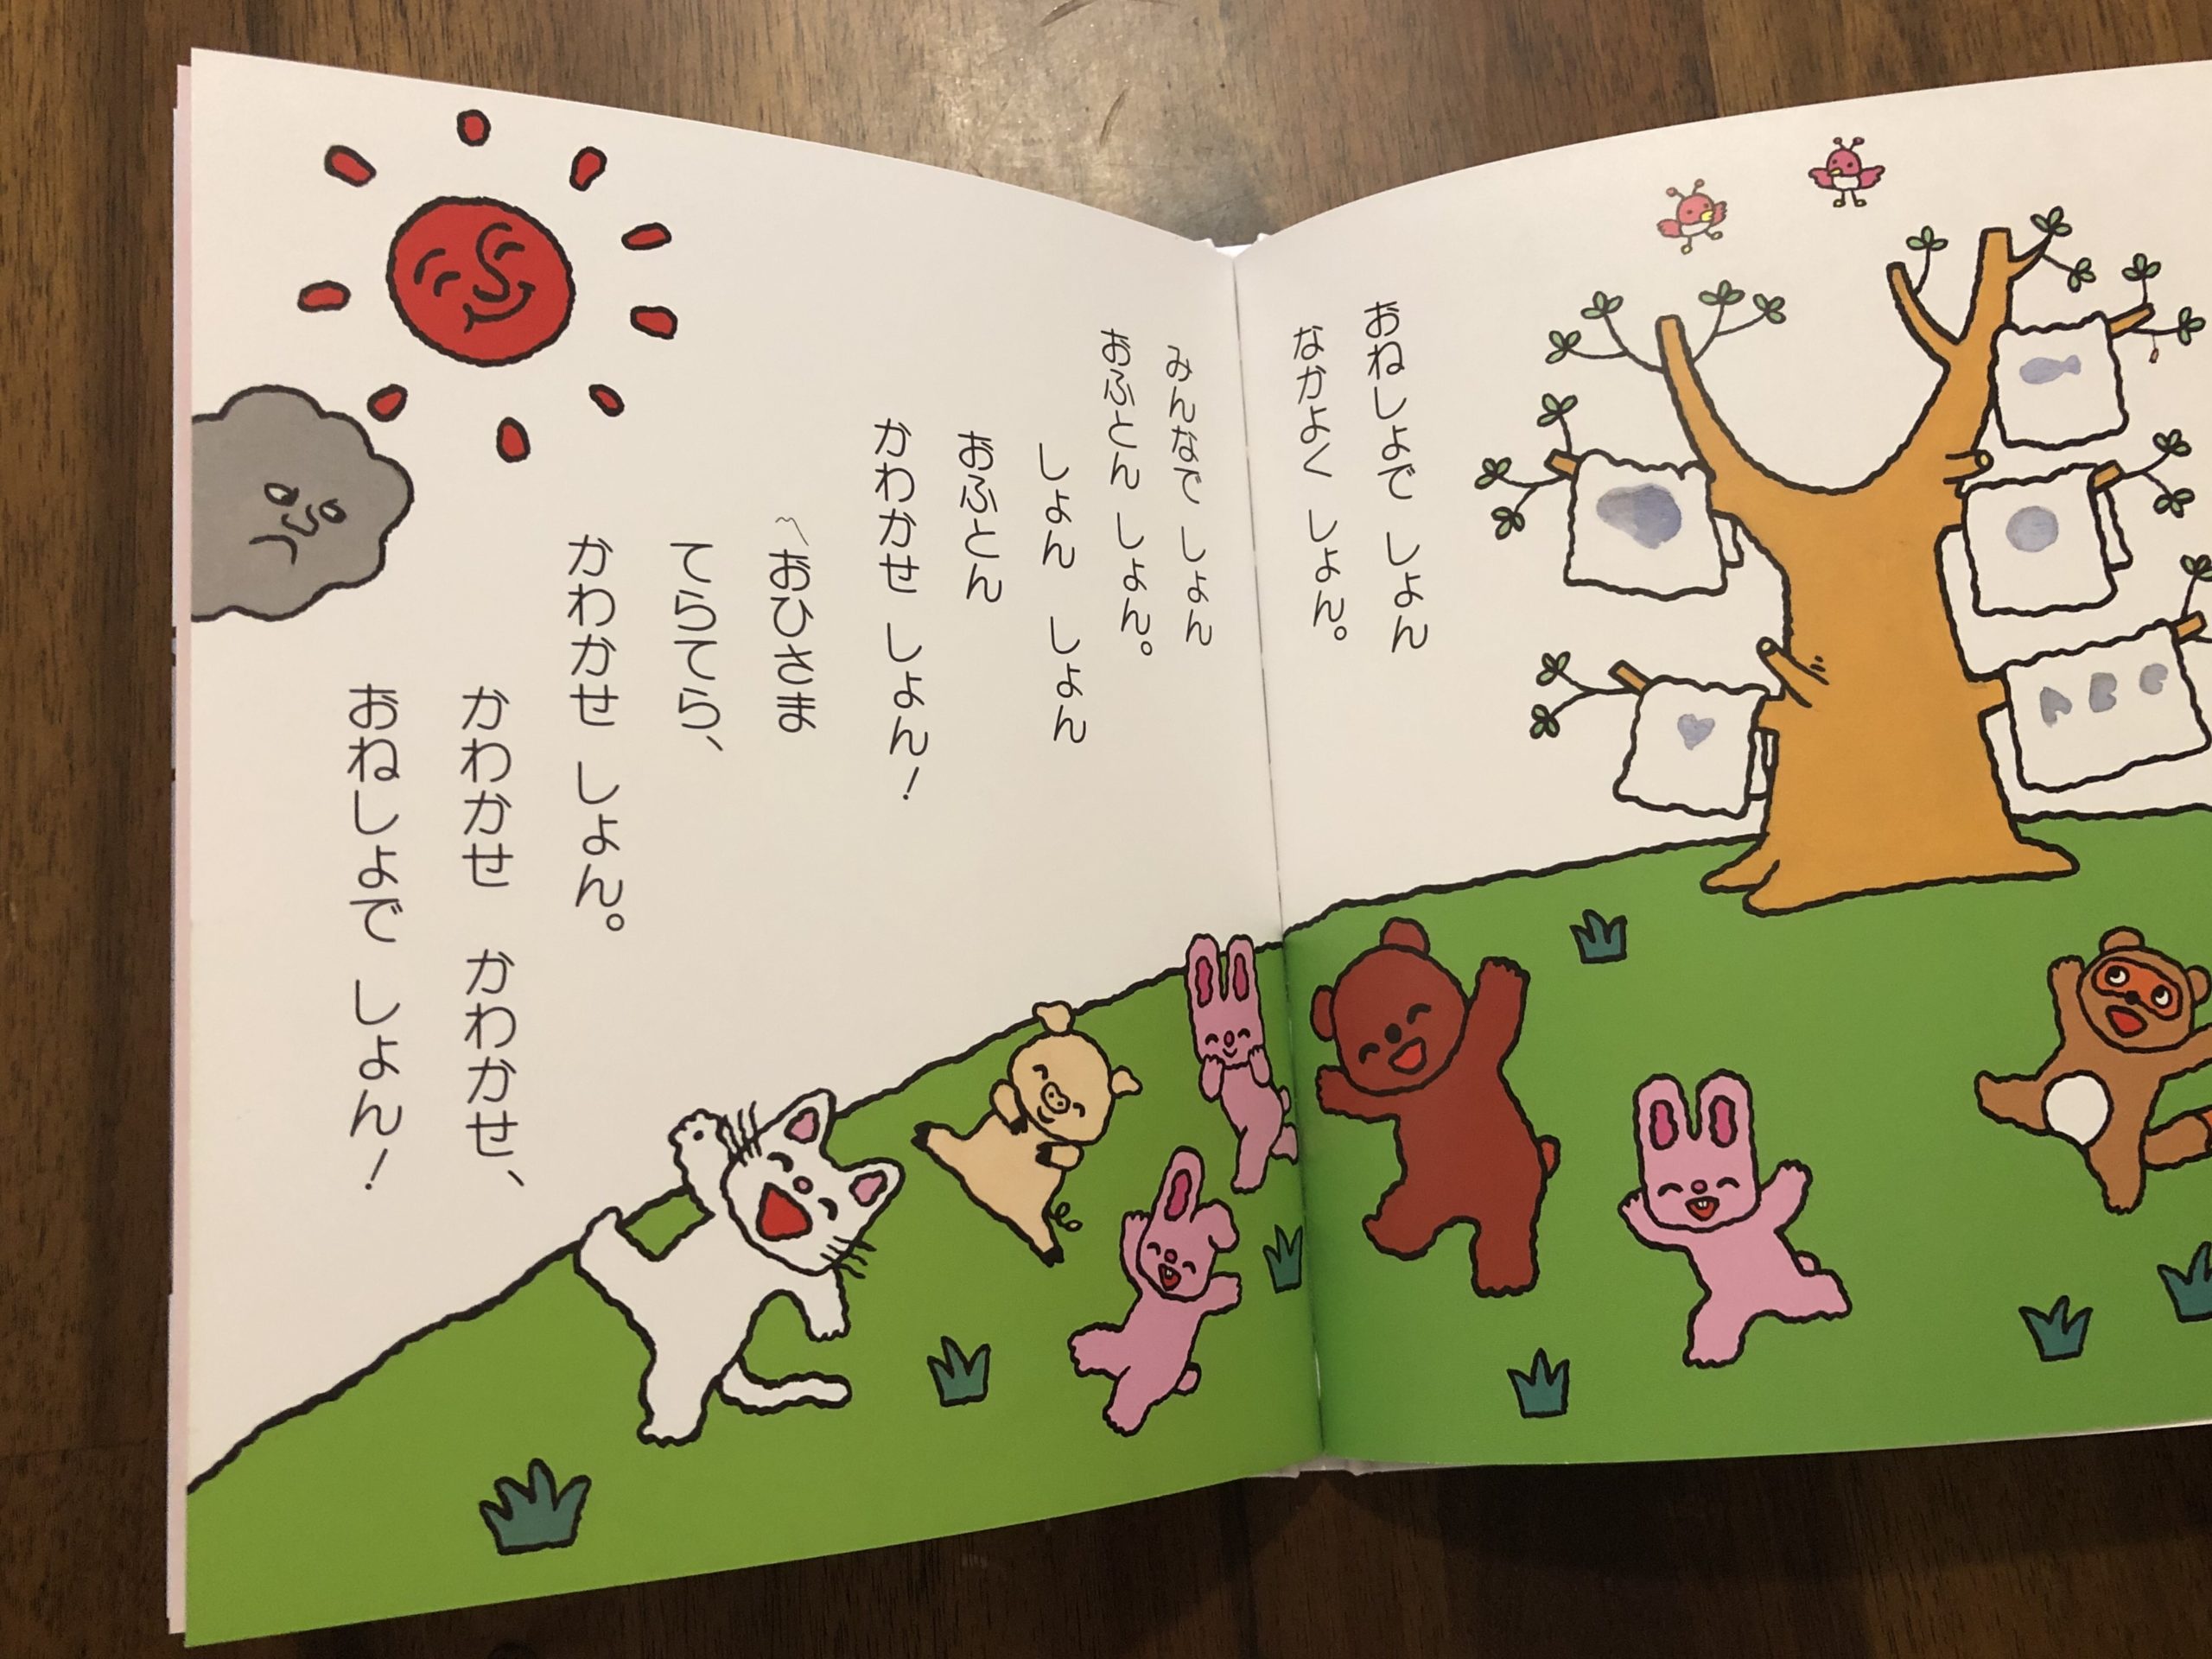 おねしょで しょん
なかよく しょん。
みんなで しょん
おふとん しょん。
しょん しょん
おふとん
かわかせ しょん!
〽おひさま
てらてら、
かわかせ しょん。
かわかせ かわかせ、
おねしょで しょん!
ABC